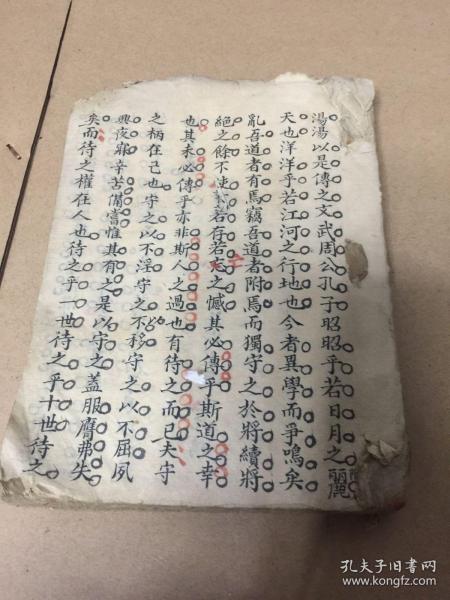 湯湯以是傳之文武周公孔子昭昭乎若日月之麗
天也洋洋乎若江河之行地也今者異學而爭鳴矣
亂吾道者有焉竊吾道者附焉而獨守之於將續將
絕之餘不使若存若之憾其必傳乎斯道之幸
也其未必傳乎亦非斯人之過也有待之而已夫守
之柄在己也守之以不淫守之不移守之以不屈夙
興夜寐辛苦備嘗惟其有之是以守之蓋服膺弗失
矣而待之權在人也待之乎一世待之乎十世待之
孔夫子旧书网
www.kongfz.com